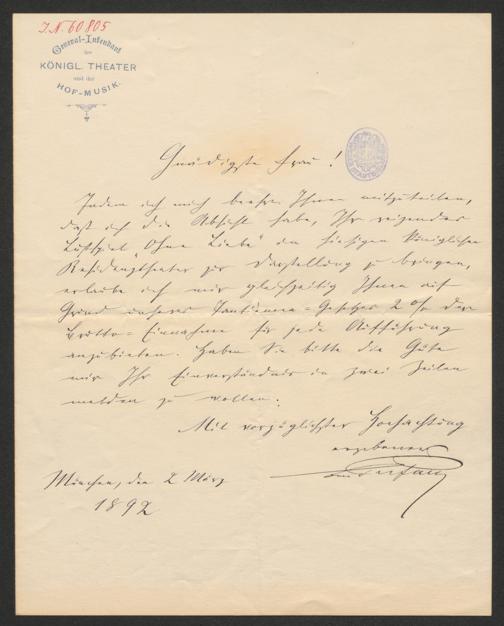 J.N. 60805
General-Intendant
der
KÖNIGL. THEATER
und der
HOF-MUSIK.
Gnädigste Frau!
Indem ich mich beehre Ihnen mitzuteilen,
daß ich die Absicht habe, Ihr reizendes
Lustspiel "Ohne Liebe" im hiesigen Königlichen
Residenztheater zur Darstellung zu bringen,
erlaube ich mir gleichzeitig Ihnen auf
Grund unseres Tantiemen-Gesetzes 2 % der
Brutto-Einnahme für jede Aufführung
anzubieten. Haben Sie bitte die Güte
mir Ihr Einverständnis in zwei Zeilen
melden zu wollen.
Mit vorzüglichster Hochachtung
ergebenst
München, den 2 März
1892